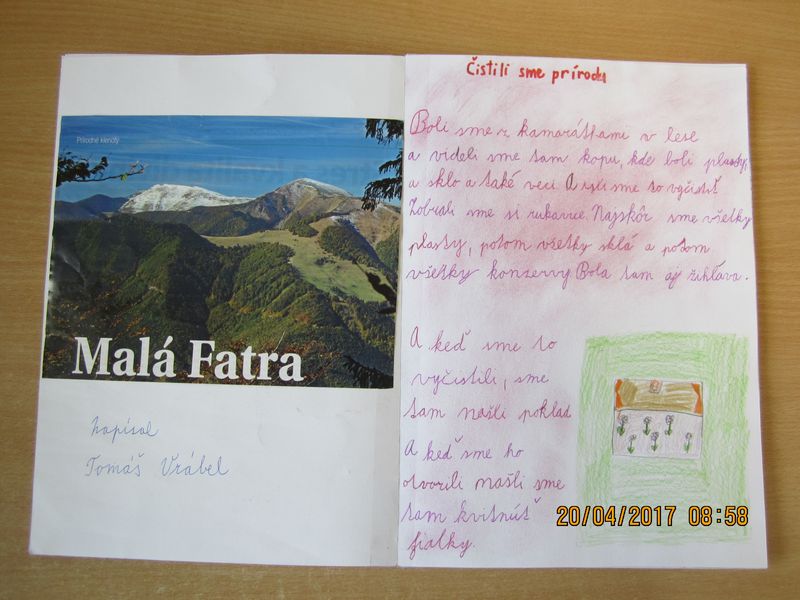 Prírodné klenoty
Malá Fatra
napísal
Tomáš Vrábel
Čistili sme prírodu
Boli sme z kamarátkami v lese
a videli sme tam kopu, kde boli plasty,
a sklo a také veci. A išli sme to vyčistiť
Zobrali sme si rukavice. Najskôr sme všetky
plasty, potom všetky sklá a potom
všetky konzervy. Bola tam aj žihlava.
A keď sme to
vyčistili, sme
tam našli poklad
A keď sme ho
otvorili našli sme
tam kvitnúť
fialky.
20/04/2017 08:58